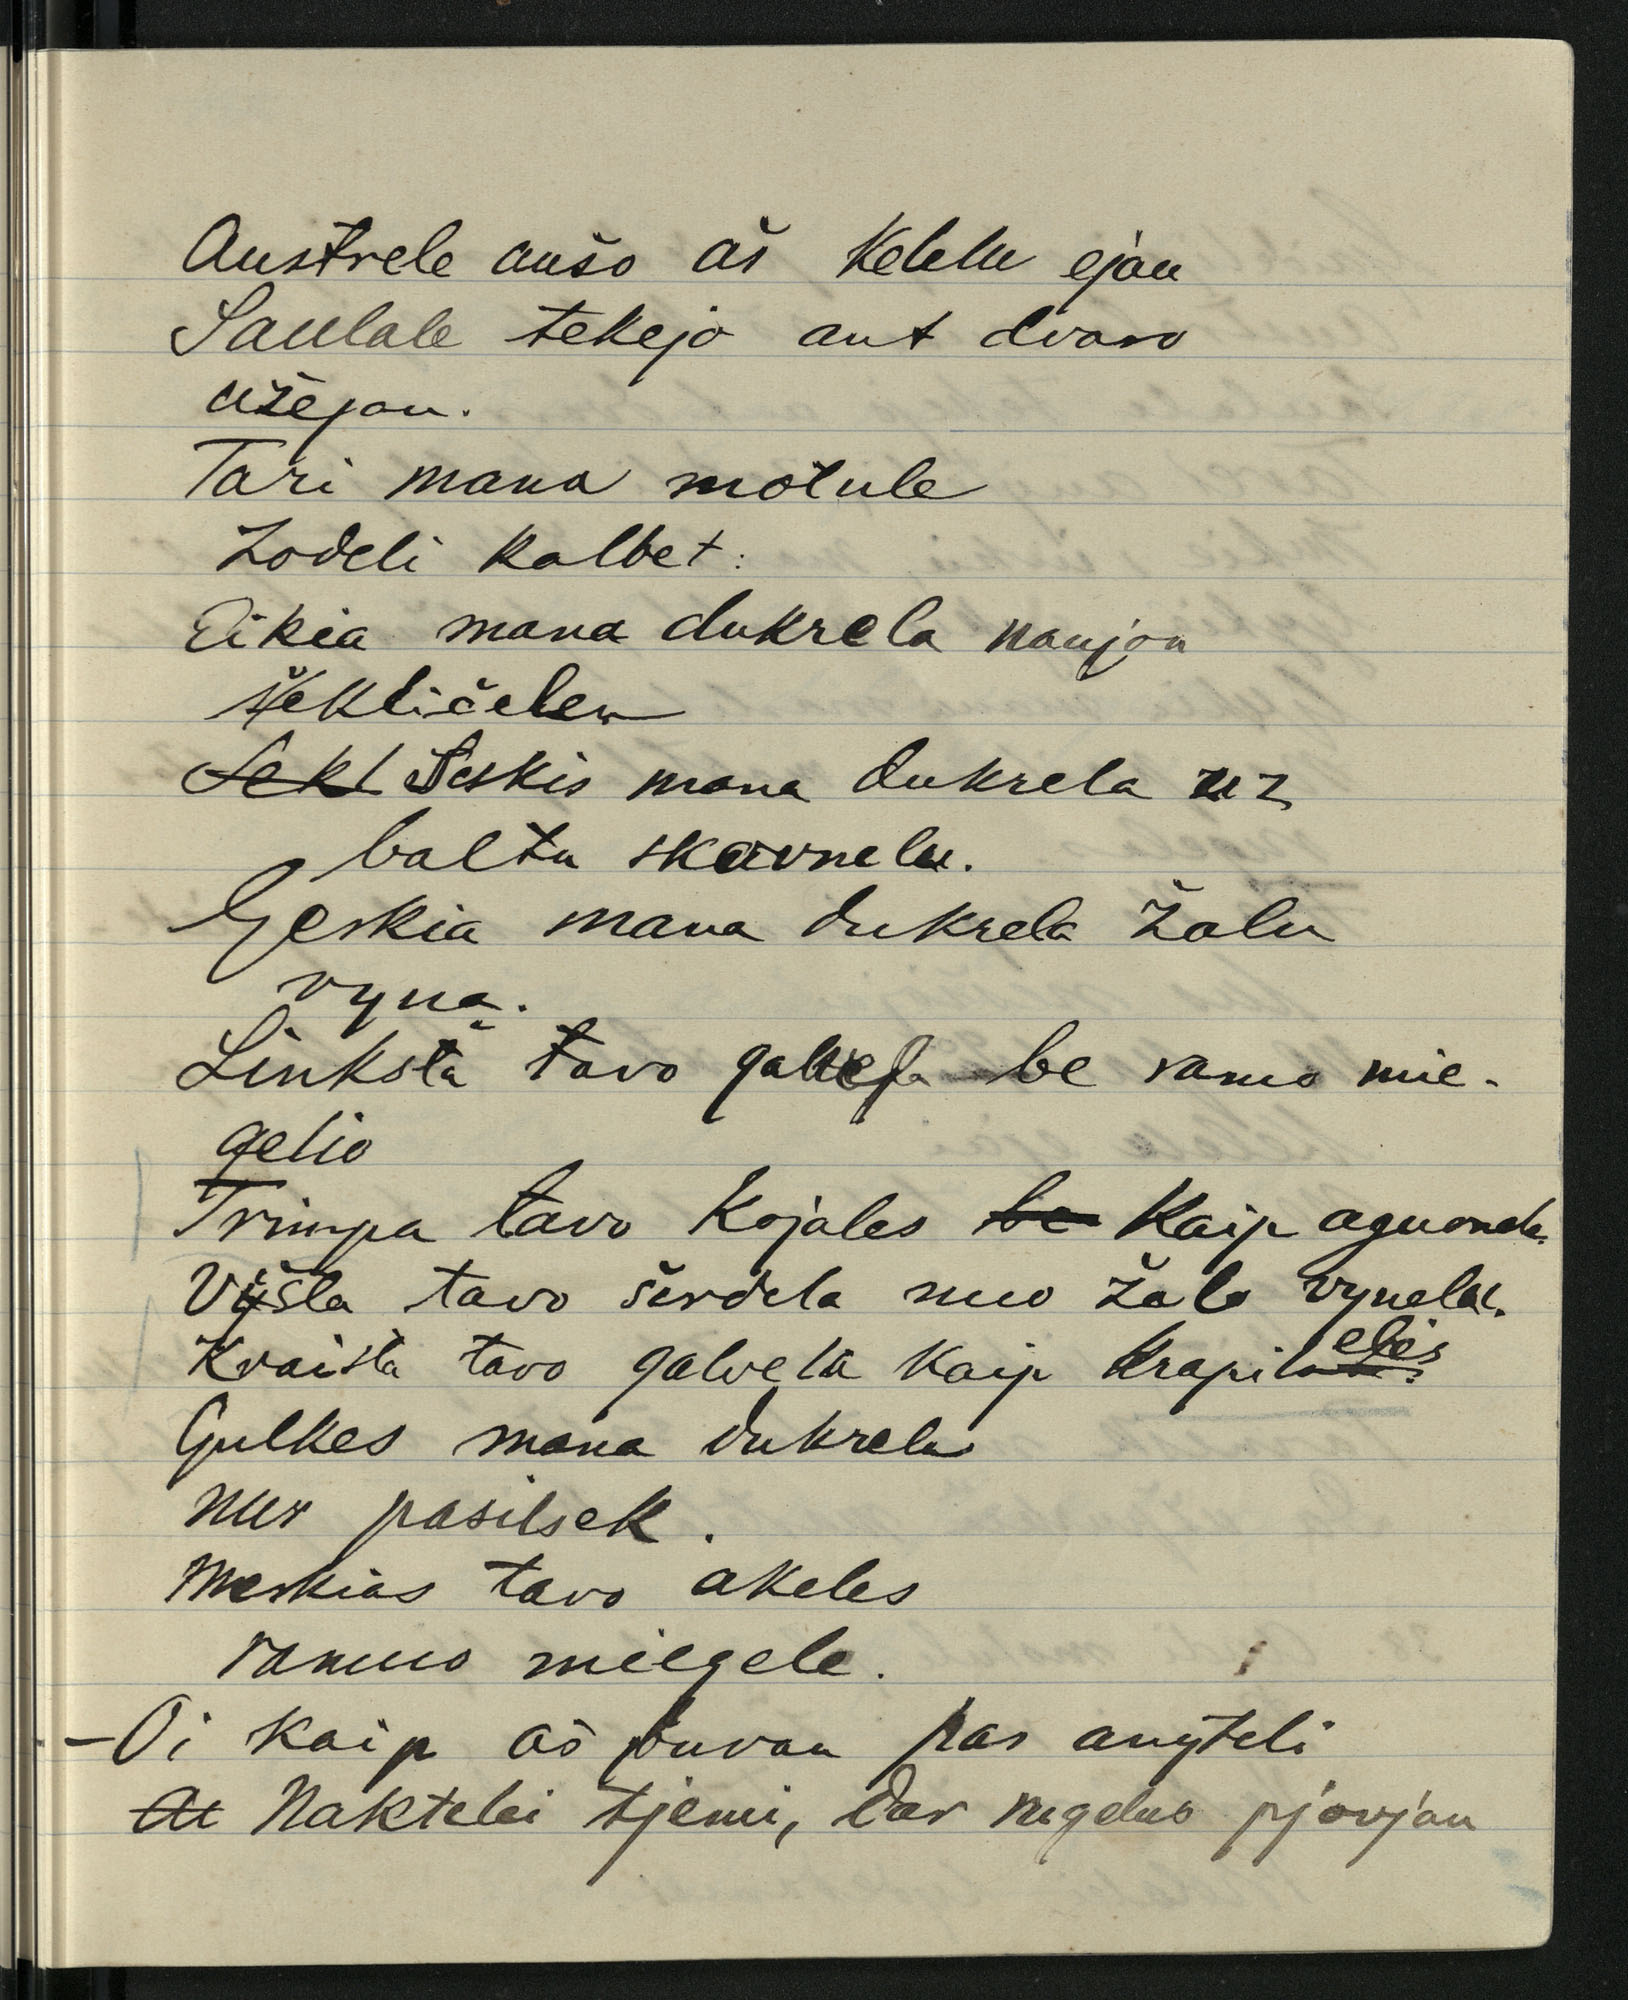 Austrele aušo aš kelelu ejau
Saulale tekejo ant dvaro
užėjau.
Tari mana motule
Zodeli kalbet:
Eikia mana dukrela naujon
šekličelen
Sekl Seskis mana dukrela uz
baltu skavnelu.
Gerkia mana dukrela žalu
vyna.
Linksta tavo galvela be ramo mie-
gelio
Trimpa tavo kojales be kaip aguonele.
Vysta tavo širdela nuo žalo vynelu.
Kraista tavo galvela kaip krapilelis
Gulkes mana dukrela
nur pasilsek.
Merkias tavo akeles
ramuo miegele.
-Oi kaip aš buvau pas anyteli
At Naktelei tjemi, dar rugelus pjovjau